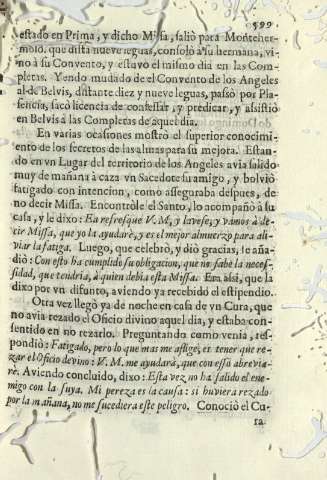 599
estado en Prima, y dicho Missa, saliò para Montehermoso, que dista nueve leguas, consolò à su hermana, vino à su Convento, y estuvo el mismo dia en las Completas. Yendo mudado de el Convento de los Angeles
al de Belvis, distante diez y nueve leguas, passò por Plasencia, sacò licencia de confessar, y predicar, y assistiò
en Belvis à las Completas de aquel dia.
En varias ocasiones mostrò el superior conocimiento de los secretos de las almas para su mejora. Estando en vn Lugar del territorio de los Angeles avia salido
muy de mañana à caza vn Sacedote su amigo, y bolviò
fatigado con intencion, como asseguraba despues, de
no decir Missa. Encontròle el Santo, lo acompañò à su
casa, y le dixo: Ea refresque V. M, y lavese, y vamos à decir Missa, que yo la ayudarè, y es el mejor almuerzo para aliviar la fatiga. Luego, que celebrò, y diò gracias, se añadiò: Con esto ha cumplido su obligacion, que no sabe la necessidad, que tendria, à quien debia esta Missa. Era assi, que la
dixo por vn difunto, aviendo ya recebido el estipendio.
Otra vez llegò ya de noche en casa de vn Cura, que
no avia rezado el Oficio divino aquel dia, y estaba consentido en no rezarlo. Preguntando como venia, respondiò: Fatigado, pero lo que mas me aflige, es tener que rezar el Oficio devino: V. M. me ayudarà, que con esso abreviare. Aviendo concluido, dixo: Esta vez no ha salido el enemigo con la suya. Mi pereza es la causa: si huviera rezado
por la mañana, no me sucediera este peligro. Conociò el Cu-
ra